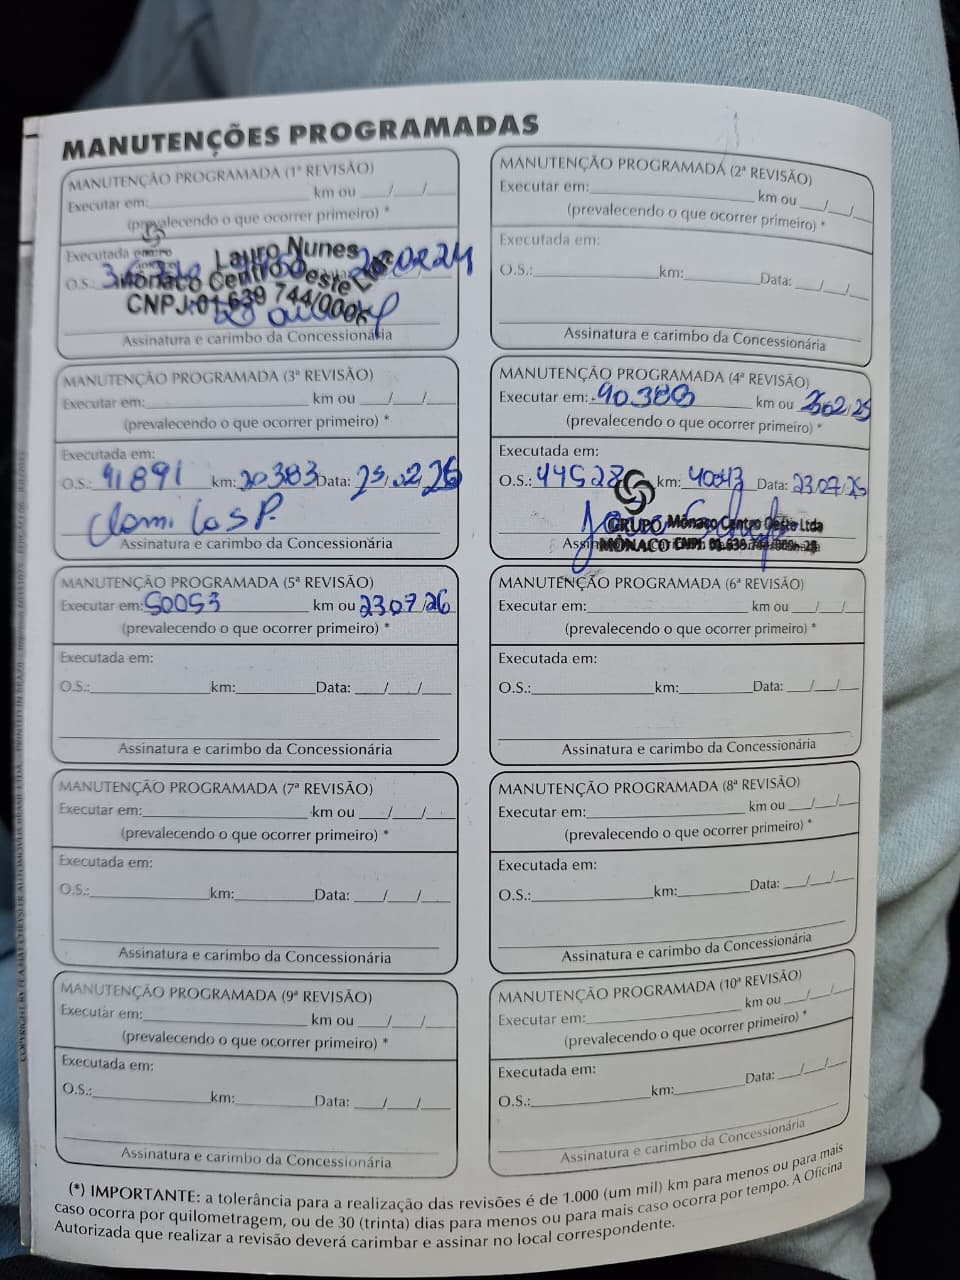 MANUTENÇÕES PROGRAMADAS
MANUTENÇÃO PROGRAMADA (1ª REVISÃO)
Executar em: km ou / /
(prevalecendo o que ocorrer primeiro) *
Executada
O.S.:
Lauro Nunes
Mônaco Centro Oeste Ltda
CNPJ:01 639 744/0006
Assinatura e carimbo da Concessionária
MANUTENÇÃO PROGRAMADA (2ª REVISÃO)
Executar em: km ou / /
(prevalecendo o que ocorrer primeiro) *
Executada em:
O.S.: km: Data: / /
Assinatura e carimbo da Concessionária
MANUTENÇÃO PROGRAMADA (3ª REVISÃO)
Executar em: km ou / /
(prevalecendo o que ocorrer primeiro) *
Executada em:
O.S.: 41891 km: 30383 Data: 25/02/25
Assinatura e carimbo da Concessionária
MANUTENÇÃO PROGRAMADA (4ª REVISÃO)
Executar em: 40.383 km ou
(prevalecendo o que ocorrer primeiro) *
Executada em:
O.S.: 44528 km: Data: 23/07/25
GRUPO MÔNACO
Mônaco Centro Oeste Ltda
MANUTENÇÃO PROGRAMADA (5ª REVISÃO)
Executar em: 50053 km ou 23/07/26
(prevalecendo o que ocorrer primeiro) *
Executada em:
O.S.: km: Data: / /
Assinatura e carimbo da Concessionária
MANUTENÇÃO PROGRAMADA (6ª REVISÃO)
Executar em: km ou / /
(prevalecendo o que ocorrer primeiro) *
Executada em:
O.S.: km: Data: / /
Assinatura e carimbo da Concessionária
MANUTENÇÃO PROGRAMADA (7ª REVISÃO)
Executar em: km ou / /
(prevalecendo o que ocorrer primeiro) *
Executada em:
O.S.: km: Data: / /
Assinatura e carimbo da Concessionária
MANUTENÇÃO PROGRAMADA (8ª REVISÃO)
Executar em: km ou / /
(prevalecendo o que ocorrer primeiro) *
Executada em:
O.S.: km: Data: / /
Assinatura e carimbo da Concessionária
MANUTENÇÃO PROGRAMADA (9ª REVISÃO)
Executar em: km ou / /
(prevalecendo o que ocorrer primeiro) *
Executada em:
O.S.: km: Data: / /
Assinatura e carimbo da Concessionária
MANUTENÇÃO PROGRAMADA (10ª REVISÃO)
Executar em: km ou / /
(prevalecendo o que ocorrer primeiro) *
Executada em:
O.S.: km: Data: / /
Assinatura e carimbo da Concessionária
(*) IMPORTANTE: a tolerância para a realização das revisões é de 1.000 (um mil) km para menos ou para mais
caso ocorra por quilometragem, ou de 30 (trinta) dias para menos ou para mais caso ocorra por tempo. A Oficina
Autorizada que realizar a revisão deverá carimbar e assinar no local correspondente.